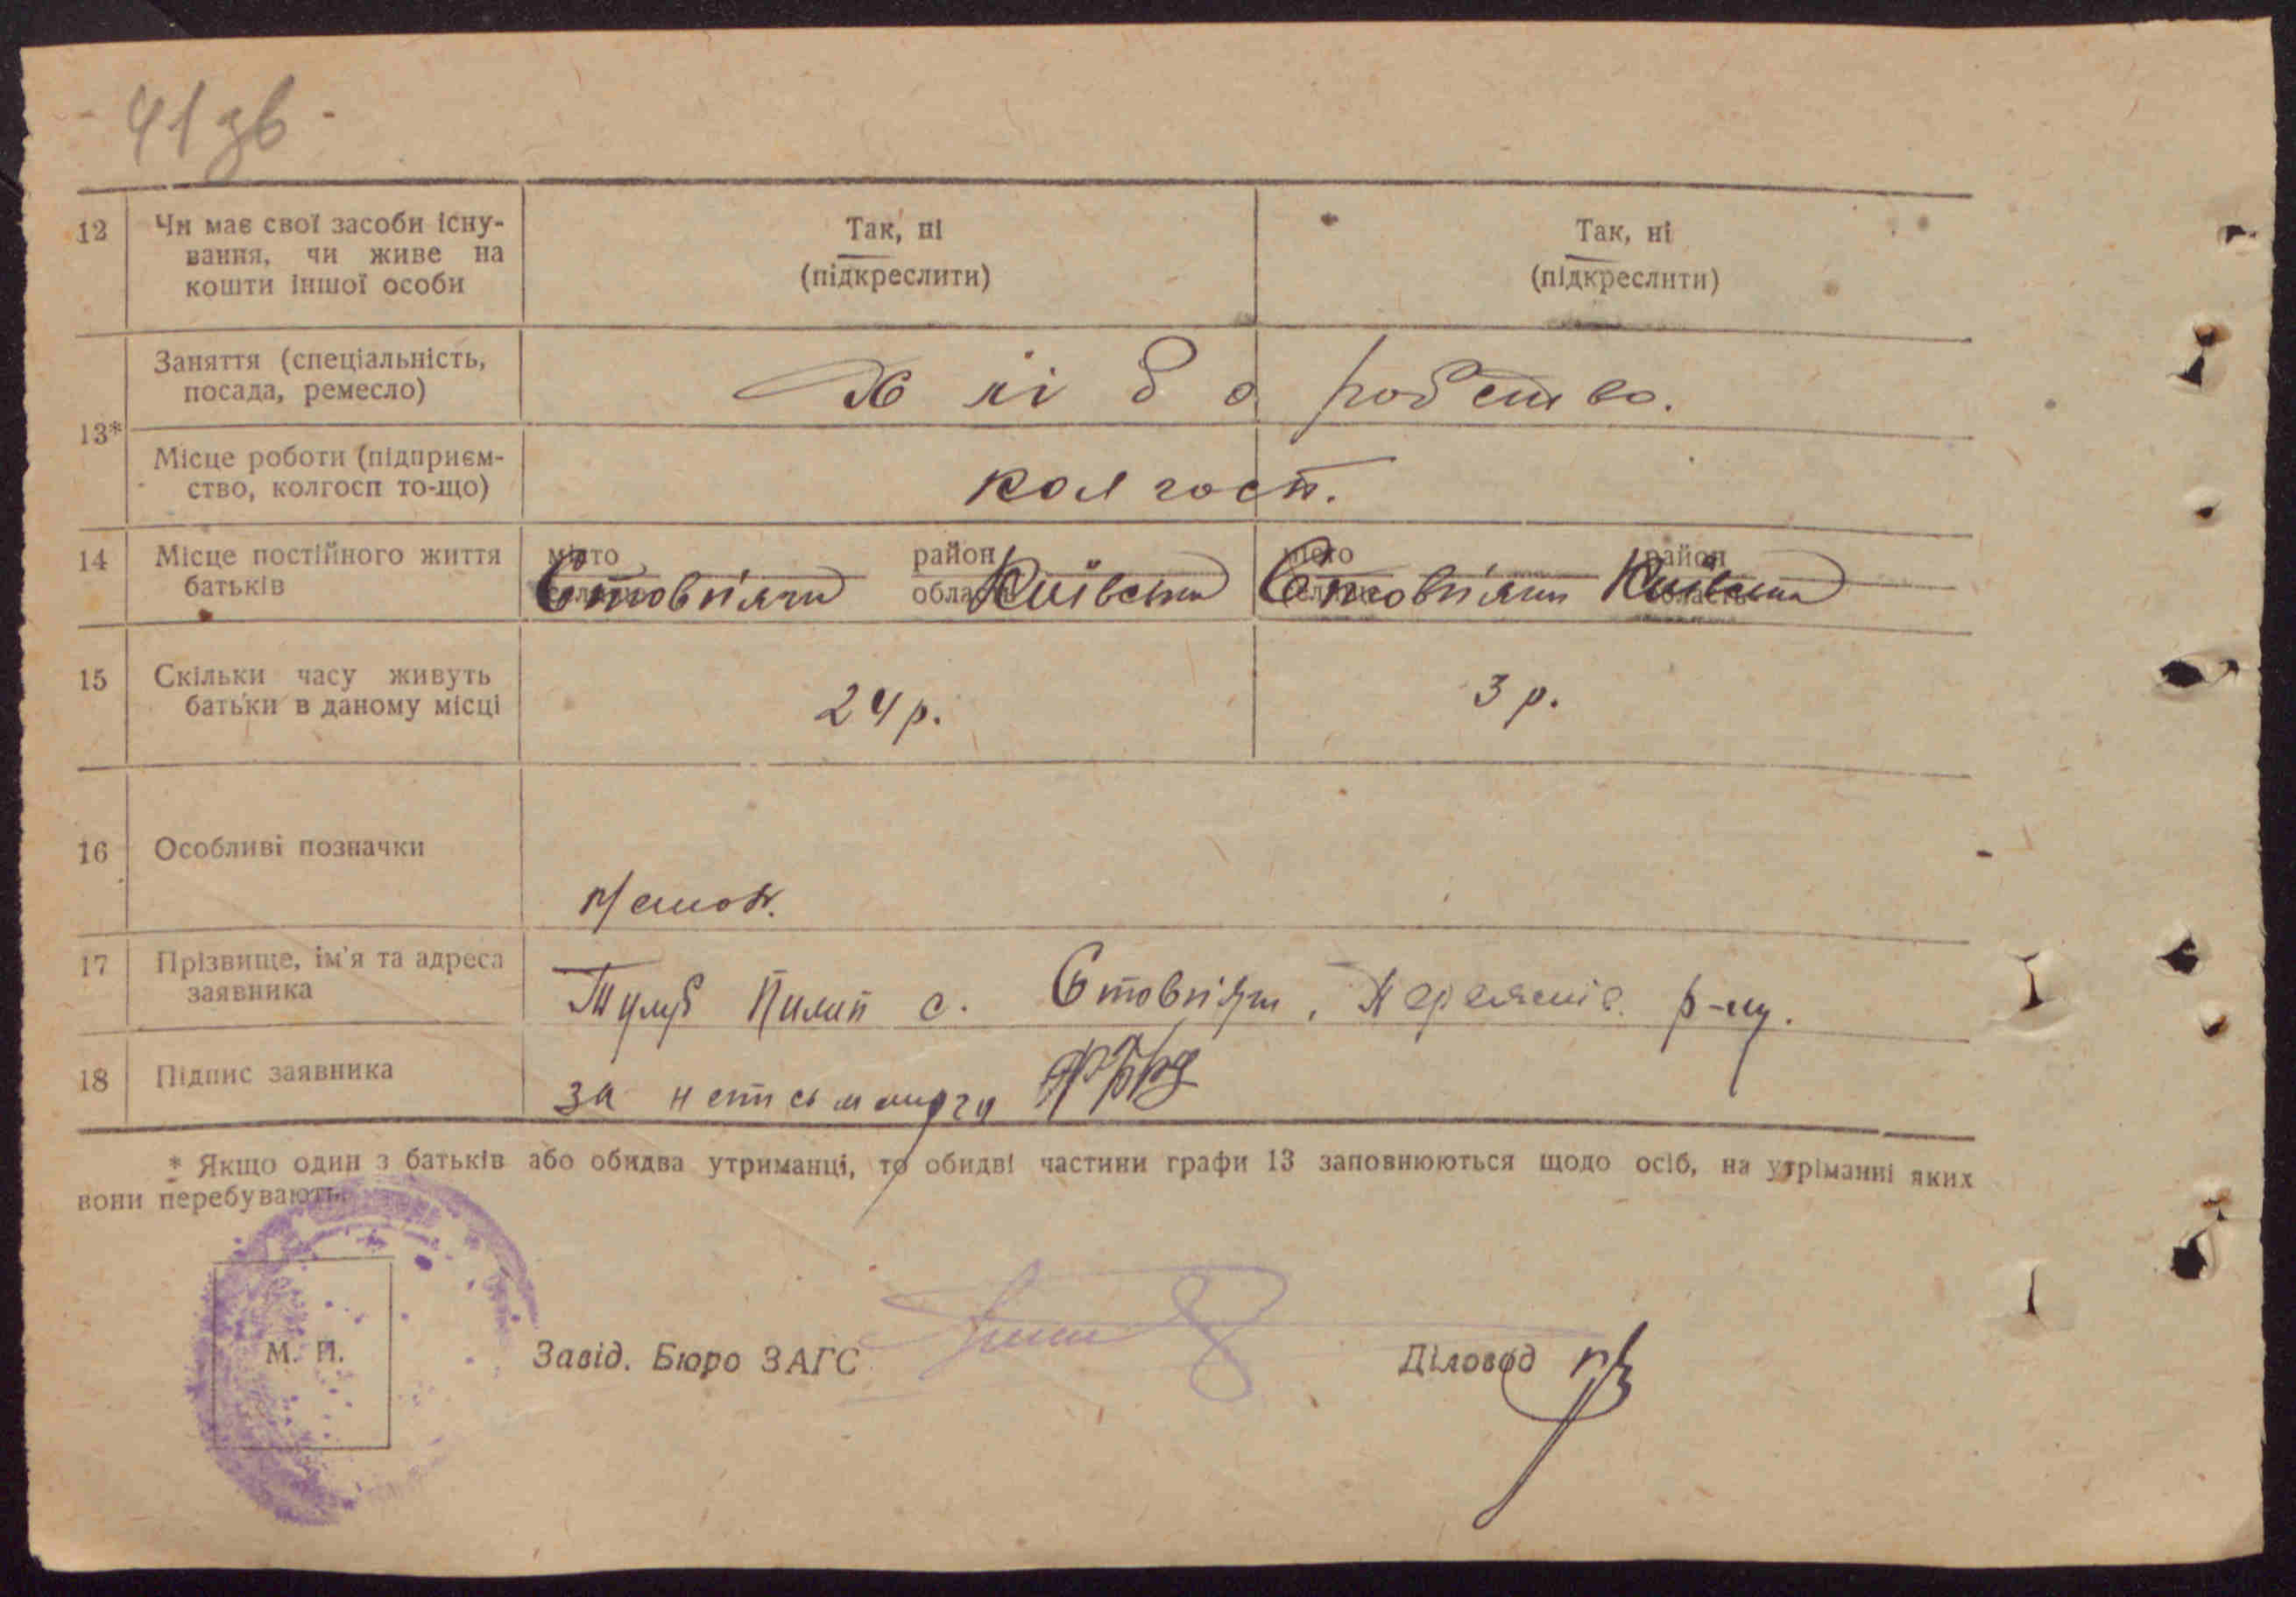 41 зв
12 Чи має свої засоби існу-
вання, чи живе на
кошти іншої особи
Так, ні
(підкреслити)
Так, ні
(підкреслити)
13*
Заняття (спеціальність,
посада, ремесло)
Хлібо робство.
Місце роботи (підприєм-
ство, колгосп то-що)
колгосп.
14 Місце постійного життя
батьків
місто район
Стовп'яги область Київськ
місто район
Стовп'яги Київськ область
15 Скільки часу живуть
батьки в даному місці
24 р.
3 р.
16 Особливі позначки
17 Прізвище, ім'я та адреса
заявника
Тулуб Пилип с. Стовп'яги, Переяслів. р-ну.
18 Підпис заявника
за неписьменого
* Якщо один з батьків або обидва утриманці, то обидві частини графи 13 заповнюються щодо осіб, на утріманні яких
вони перебувають.
М. П.
Завід. Бюро ЗАГС
Діловод